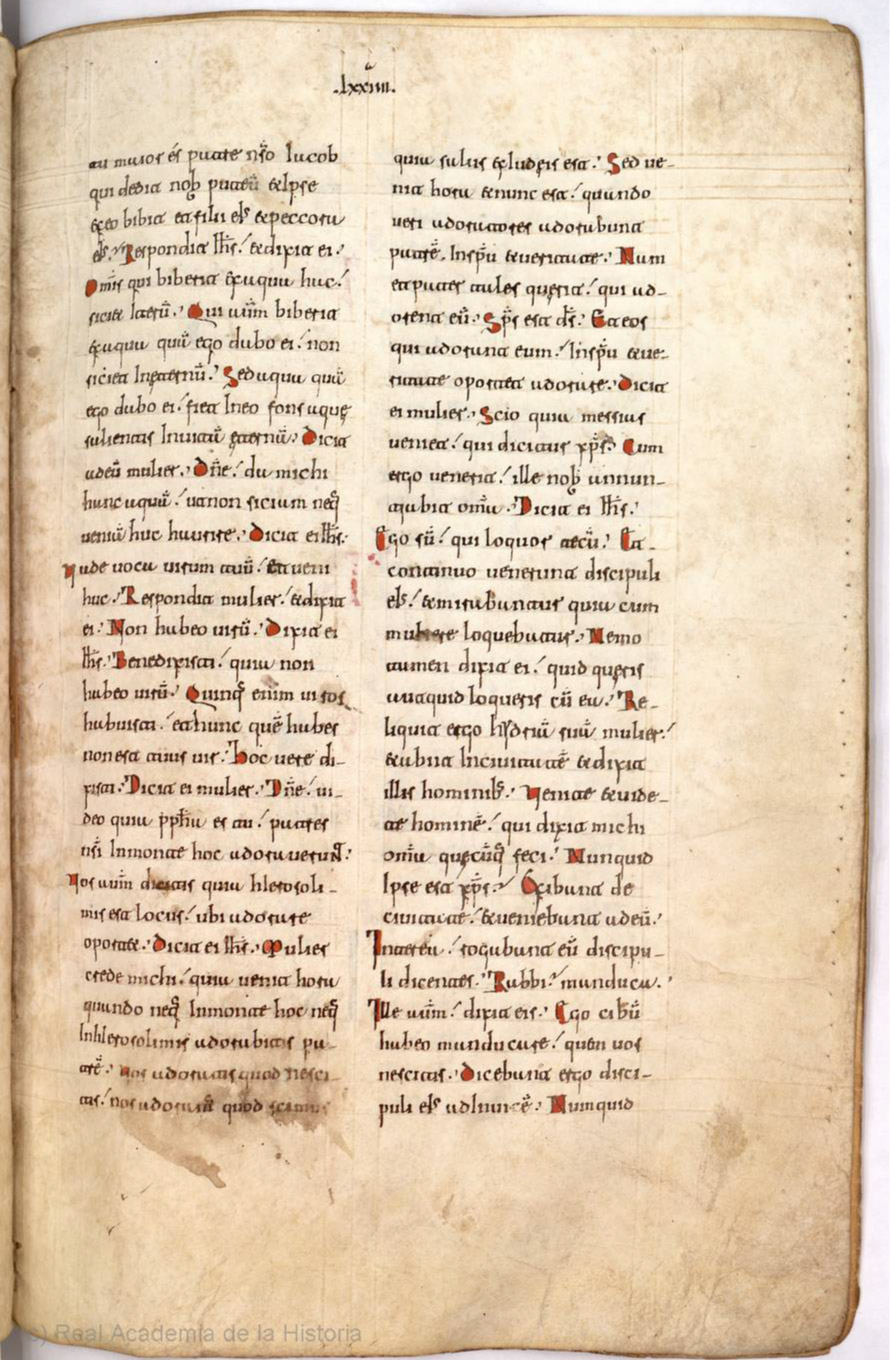 .lxxiiii.
tu maior és patre nŝo Iacob
qui dedit nob puteū & Ipse
ex eo bibit et filii eīs & peccora
eīs. Respondit Ihs̄. & dixit ei.
Omīs qui biberit ex aqua hac.
siciet Iterū. Qui aūm biberit
ex aqua quā ego dabo ei. non
siciet In eternū. Sed aqua quā
ego dabo ei. fiet In eo fons aque
salientis In uitā eternā. Dicit
ad eū mulier. Dn̄e. da michi
hanc aquā. ut non siciam neq
ueniā huc haurire. Dicit ei Ihs̄.
Uade uoca uirum tuū. et ueni
huc. Respondit mulier. & dixit
ei. Non habeo uirū. Dixit ei
Ihs̄. Bene dixisti. quia non
habeo uirū. Quinq enim uiros
habuisti. et hunc quē habes
non est tuus uir. Hoc uere di-
xisti. Dicit ei mulier. Dn̄e. ui-
deo quia pp̄hta es tu. patres
nsī In monte hoc adorauerunt.
Uos aūm dicitis quia Hierosoli-
mis est locus. ubi adorare
oportet. Dicit ei Ihs̄. Mulier
crede michi. quia uenit hora
quando neq In monte hoc neq
In Hierosolimis adorabitis pa-
trē. Uos adoratis quod nesci-
tis. nos adoramꝰ quod scimus
quia salus ex Iudeis est. Sed ue-
nit hora & nunc est. quando
ueri adoratores adorabunt
patrē. In spū & ueritate. Nam
et pater tales querit. qui ad-
orent eū. Sps̄ est ds̄. Et eos
qui adorant eum. In spū & ue-
ritate oportet adorare. Dicit
ei mulier. Scio quia messias
ueniet. qui dicitur xp̄s. Cum
ergo uenerit. ille nob annun-
tiabit omīa. Dicit ei Ihs̄.
Ego sū. qui loquor tecū. Et
continuo uenerunt discipuli
eīs. & mirabantur quia cum
muliere loquebatur. Nemo
tamen dixit ei. quid queris
aut quid loqueris cū ea. Re-
liquit ergo hydriā suā mulier.
& abiit In ciuitatē & dixit
illis hominib. Uenite & uide-
te hominē. qui dixit michi
omīa quecūq feci. Nunquid
Ipse est xp̄s. Exibant de
ciuitate. & ueniebant ad eū.
Interea. rogabant eū discipu-
li dicentes. Rabbi. manduca.
Ille aūm. dixit eis. Ego cibū
habeo manducare. quem uos
nescitis. Dicebant ergo disci-
puli eīs ad Inuicē. Numquid
Real Academia de la Historia